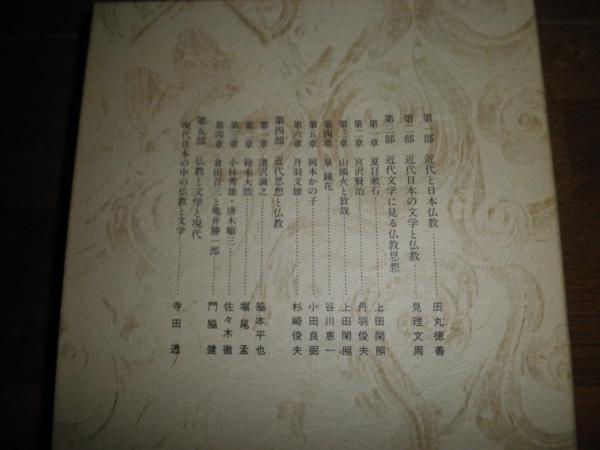 第一部　近代と日本仏教………田丸徳善
第二部　近代日本の文学と仏教………見理文周
第三部　近代文学に見る仏教思想
第一章　夏目漱石………上田閑照
第二章　宮沢賢治………丹羽俊夫
第三章　山頭火と放哉………上田閑照
第四章　泉鏡花………谷川恵一
第五章　岡本かの子………小田良弼
第六章　丹羽文雄………杉崎俊夫
第四部　近代思想と仏教
第一章　清沢満之………脇本平也
第二章　鈴木大拙………堀尾孟
第三章　小林秀雄・唐木順三………佐々木徹
第四章　倉田百三と亀井勝一郎………門脇健
第五部　仏教と文学と現代
現代日本の中の仏教と文学………寺田透